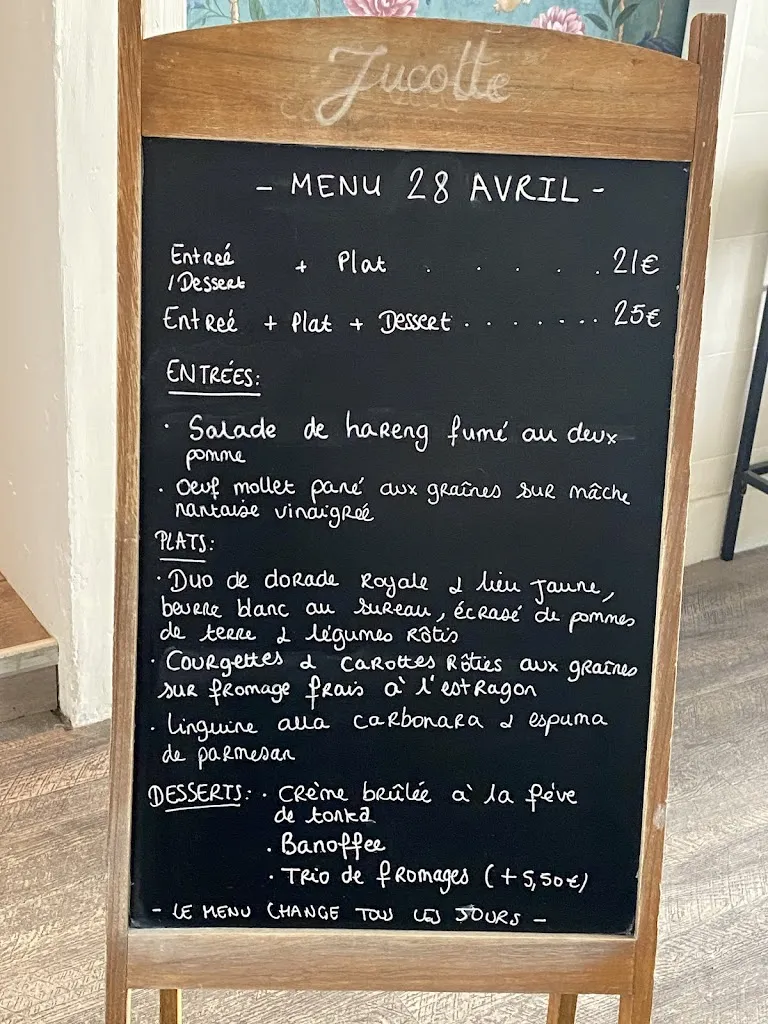 Jucotte
- MENU 28 AVRIL -
Entreé
/Dessert + Plat . . . . . 21€
Entreé + Plat + Dessert . . . . . . . 25€
ENTRÉES:
· Salade de hareng fumé au deux
pomme
· Oeuf mollet pané aux graînes sur mâche
nantaise vinaigreé
PLATS:
· Duo de dorade Royale & lieu jaune,
beurre blanc au sureau, écrasé de pommes
de terre & légumes Rôtis
· Courgettes & carottes Rôties aux graînes
sur fromage frais à l'estragon
· linguine alla carbonara & espuma
de parmesan
DESSERTS: · Crème brûlée à la fève
de tonka
· Banoffee
· Trio de fromages (+5,50€)
- LE MENU CHANGE TOUS LES JOURS -